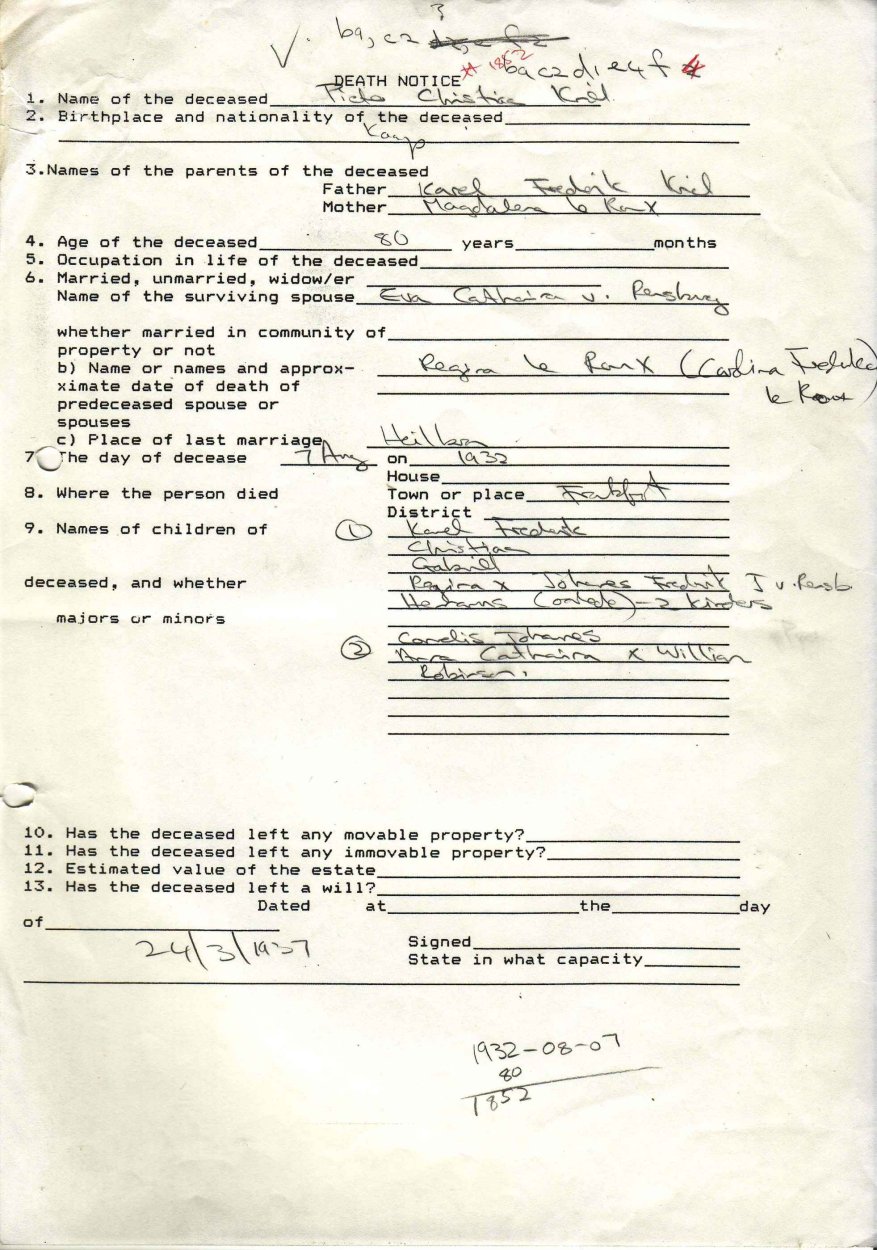 3
V. b9, c2
* 1852 b9c2d1e4f
DEATH NOTICE
1. Name of the deceased Christian Kriel
2. Birthplace and nationality of the deceased
Kaap
3.Names of the parents of the deceased
Father Karel Frederik Kriel
Mother Magdalena le Roux
4. Age of the deceased 80 years months
5. Occupation in life of the deceased
6. Married, unmarried, widow/er
Name of the surviving spouse Eva Catharina v. Rensburg
whether married in community of
property or not
b) Name or names and approx- Regina le Roux (Carolina
ximate date of death of le Roux)
predeceased spouse or
spouses
c) Place of last marriage Heilbron
7 The day of decease 7 Aug on 1932
House
8. Where the person died Town or place Frankfort
District
9. Names of children of ① Karel Frederik
Christian
Gabriel
deceased, and whether Regina x Johannes Fredrik J v. Rensb
(oorlede) - 2 kinders
majors or minors
② Cornelis Johannes
Anna Catharina x William
Robinson.
10. Has the deceased left any movable property?
11. Has the deceased left any immovable property?
12. Estimated value of the estate
13. Has the deceased left a will?
Dated at the day
of
24/3/1937
Signed
State in what capacity
1932-08-07
80
1852